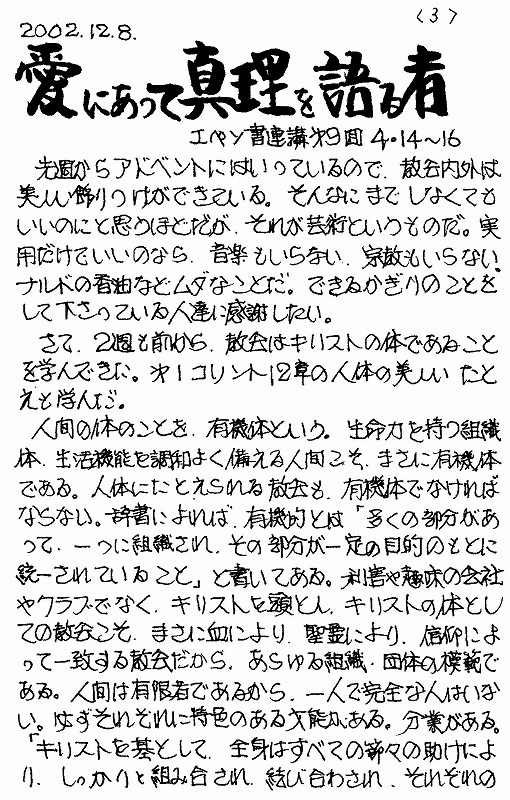 (3)
2002.12.8.
愛にあって真理を語る者
エペソ書連講第9回 4・14〜16
先週からアドベントにはいっているので、教会内外は
美しい飾りつけができている。そんなにまでしなくても
いいのにと思うほどだが、それが芸術というものだ。実
用だけでいいのなら、音楽もいらない、宗教もいらない、
ナルドの香油などムダなことだ。できるかぎりのことを
して下さっている人達に感謝したい。
さて、2週も前から、教会はキリストの体であること
を学んできた。第1コリント12章の人体の美しいたと
えも学んだ。
人間の体のことを、有機体という。生命力を持つ組織
体、生活機能を調和よく備える人間こそ、まさに有機体
である。人体にたとえられる教会も、有機体でなければ
ならない。辞書によれば、有機的とは「多くの部分があ
って、一つに組織され、その部分が一定の目的のもとに
統一されていること」と書いてある。利害や趣味の会社
やクラブでなく、キリストを頭とし、キリストの体とし
ての教会こそ、まさに血により、聖霊により、信仰によ
って一致する教会だから、あらゆる組織・団体の模範で
ある。人間は有限者であるから、一人で完全な人はいな
い。必ずそれぞれに特色のある才能がある。分業がある。
「キリストを基として、全身はすべての節々の助けによ
り、しっかりと組み合され、結び合わされ、それぞれの